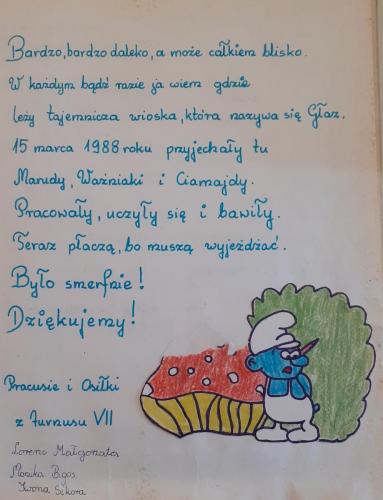 Bardzo, bardzo daleko, a może całkiem blisko.
W każdym bądź razie ja wiem gdzie
leży tajemnicza wioska, która nazywa się Głaz.
15 marca 1988 roku przyjechały tu
Marudy, Ważniaki i Ciamajdy.
Pracowały, uczyły się i bawiły.
Teraz płaczą, bo muszą wyjeżdżać.
Było smerfnie!
Dziękujemy!
Pracusie i Osiłki
z turnusu VII
Lorenc Małgorzata
Monika Bigos
Iwona Sikora